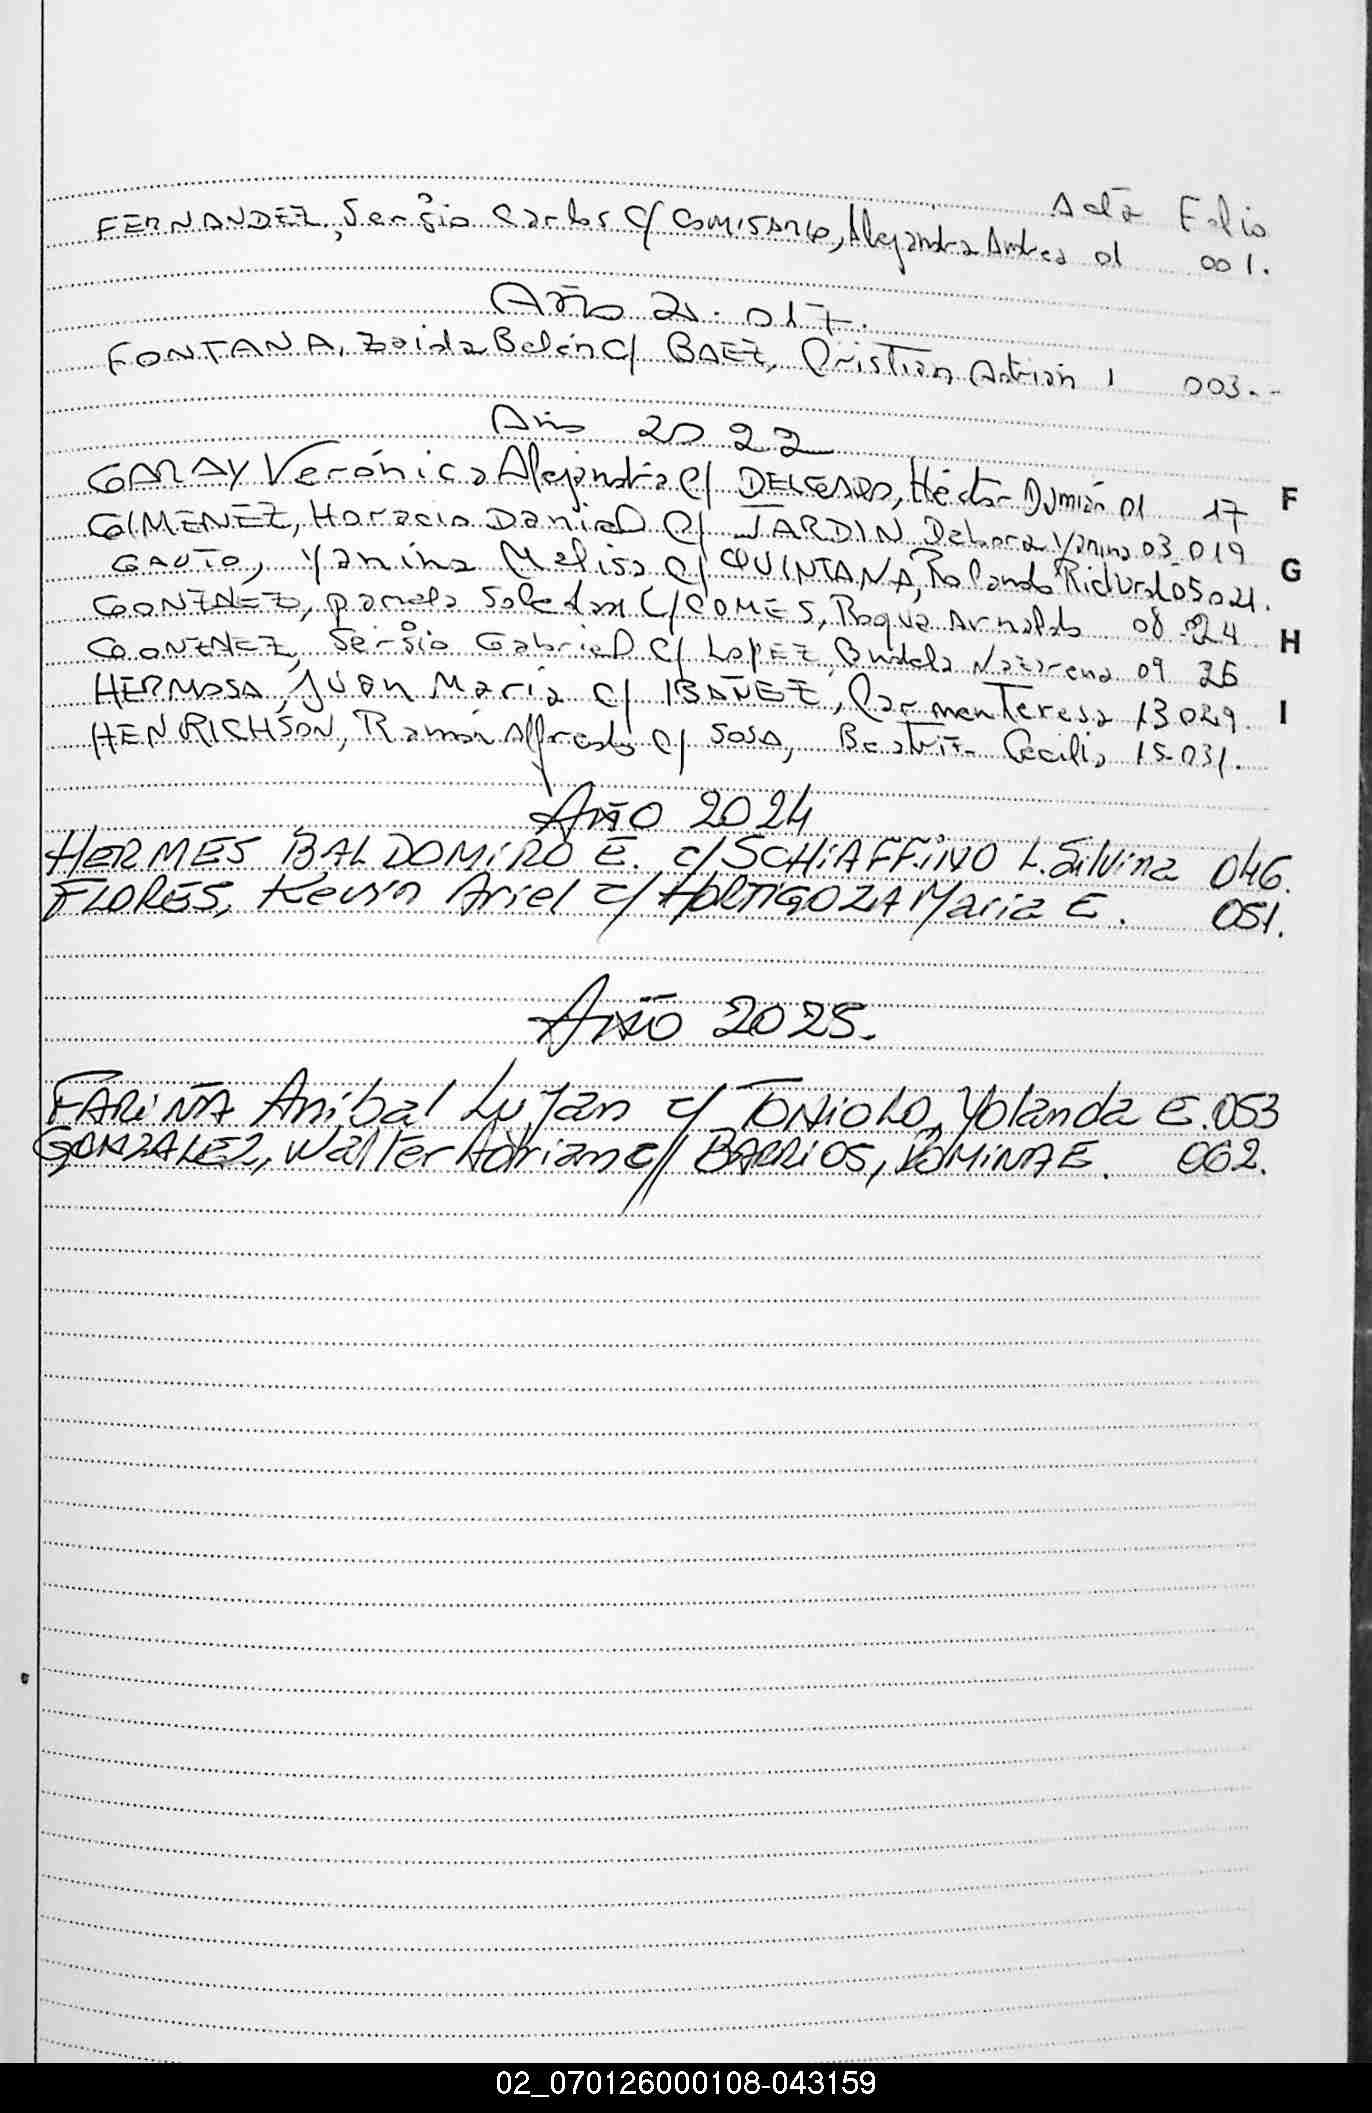 Acta Folio
FERNANDEZ, Sergio Carlos c/ COMISARIO, Alejandra Andrea 01 001.
Año 2.017.
FONTANA, Zaida Belén c/ BAEZ, Cristian Adrián 1 003.-
Año 2022
GARAY Verónica Alejandra c/ DELGADO, Héctor Damián 01 17
GIMENEZ, Horacio Daniel c/ JARDIN Debora Yanina 03 019
GAUTO, Yanina Melisa c/ QUINTANA, Rolando Ricardo 05 021.
GONZALEZ, pamela Soledad c/ GOMES, Roque Arnaldo 08 024
GONZALEZ, Sergio Gabriel c/ LOPEZ, Nazarena 09 26
HERMOSA, Juan María c/ IBAÑEZ, Carmen Teresa 13 029.
HENRICHSON, Ramón Alfredo c/ SOSA, Beatriz Cecilia 15-031.
AÑO 2024
HERMES BALDOMIRO E. c/ SCHIAFFINO L. Silvina 046.
FLORES, Kevin Ariel c/ HORTIGOZA Maria E. 051.
AÑO 2025.
FARIÑA Anibal Lujan c/ TONIOLO, Yolanda E. 053
GONZALEZ, Walter Adrian c/ BARRIOS, ROMINA E. 062.
F
G
H
I
02_070126000108-043159